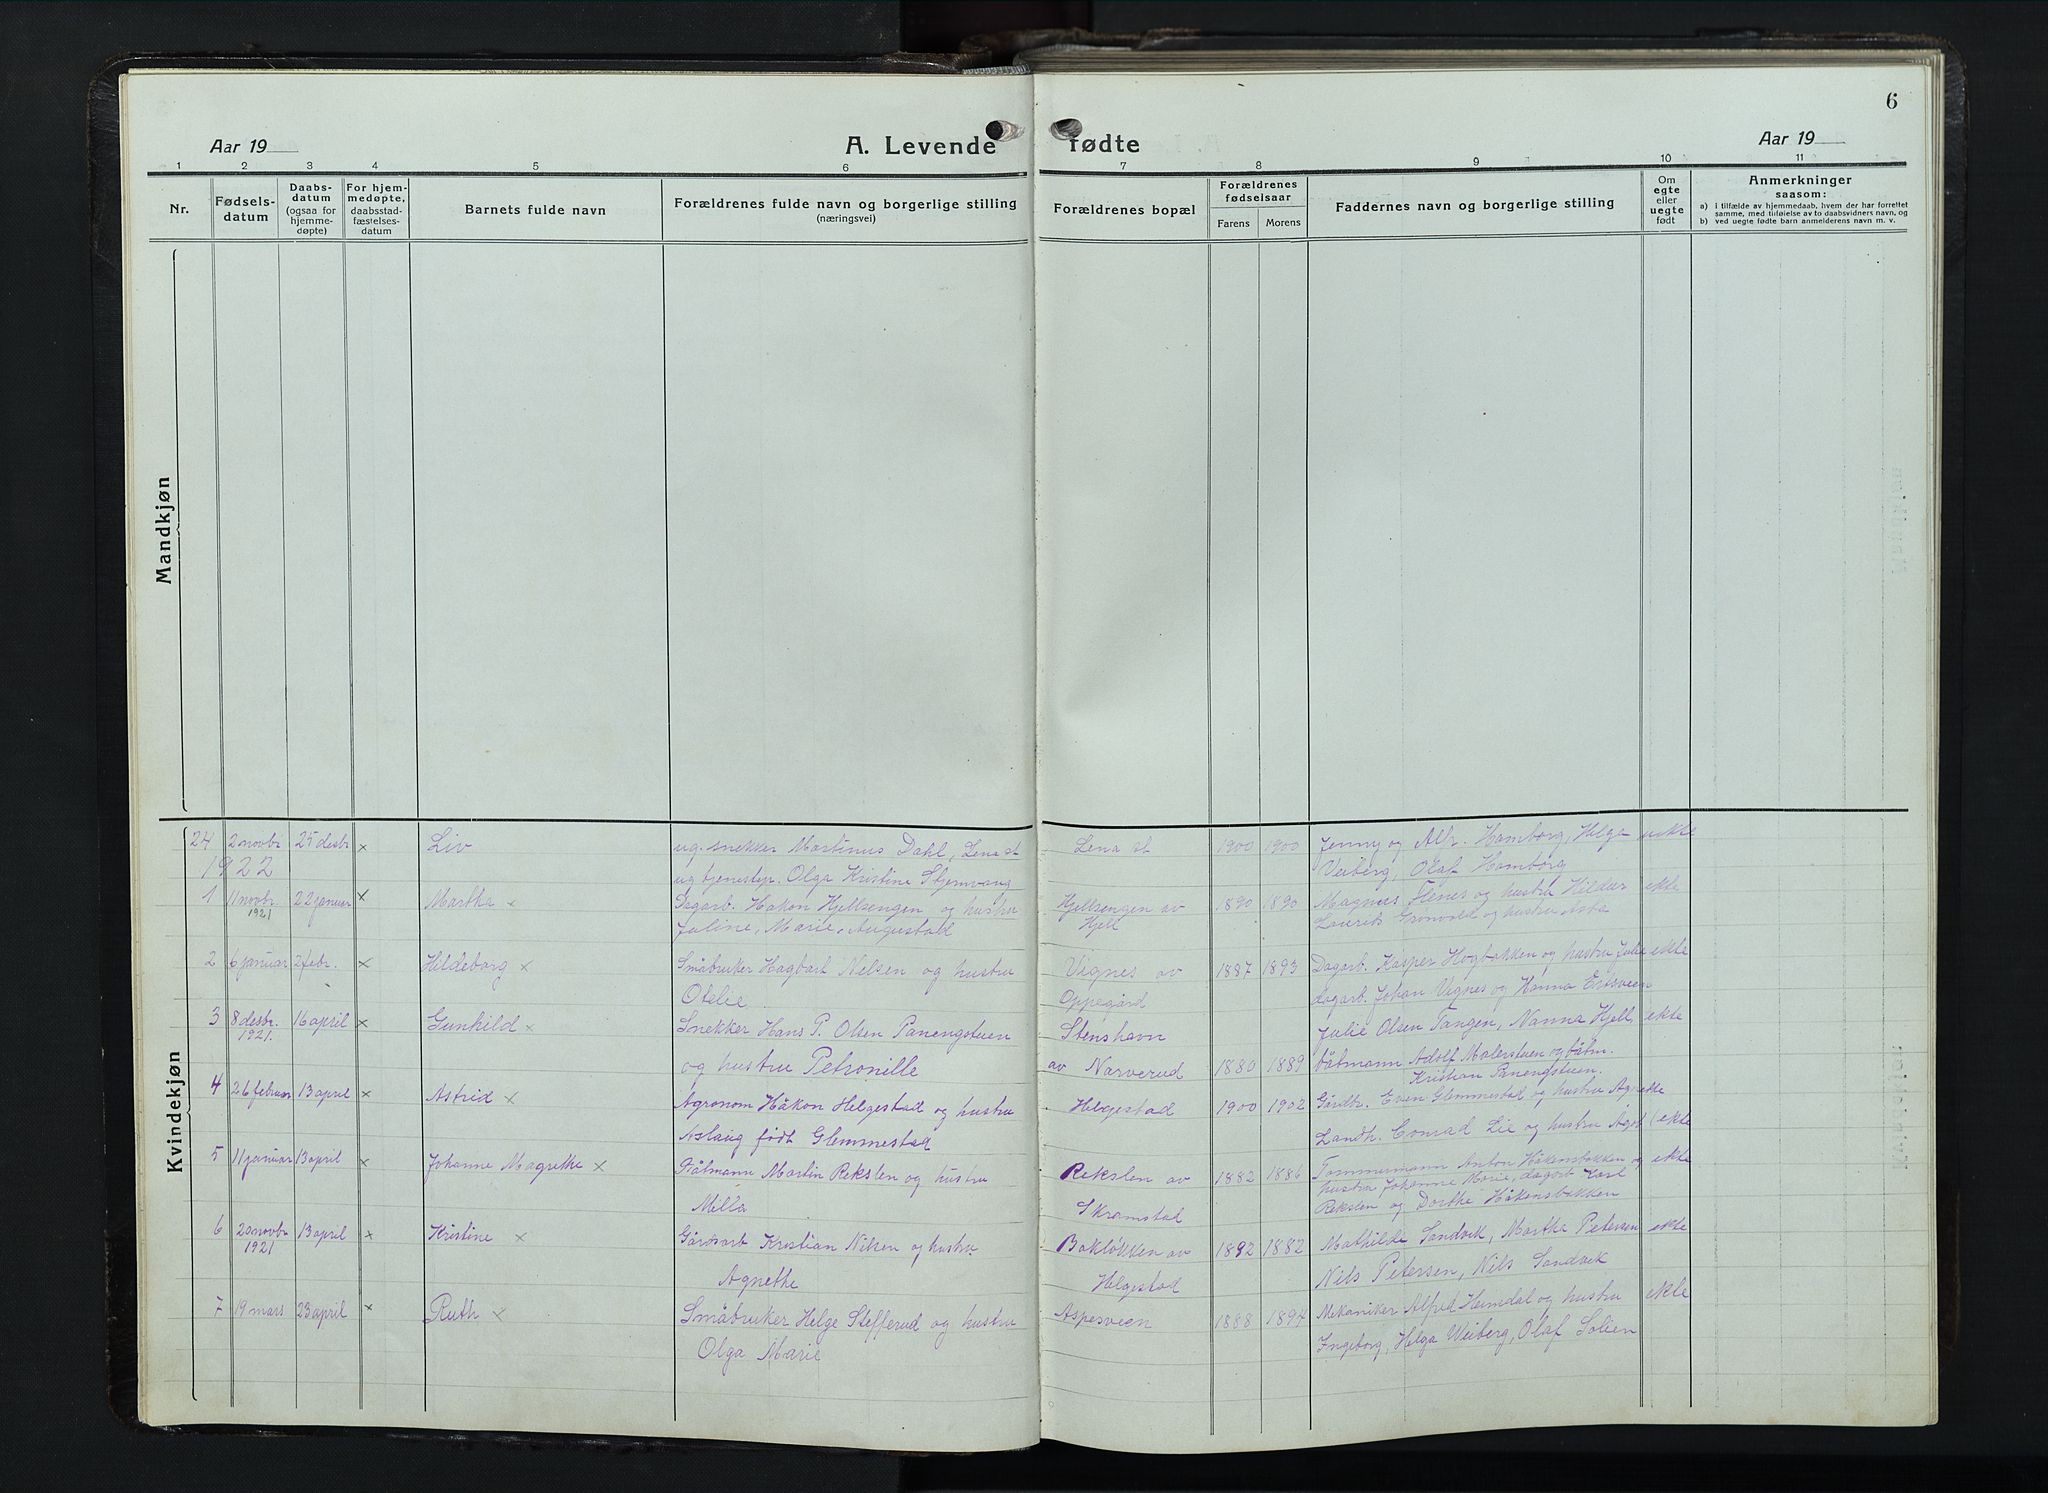 6
Aar 19
A. Levende fødte
Aar 19
1 2 3 4 5 6 7 8 9 10 11
Nr.
Fødsels-
datum
Daabs-
datum
(ogsaa for
hjemme-
døpte)
For hjem-
medøpte,
daabsstad-
fæstelses-
datum
Barnets fulde navn
Forældrenes fulde navn og borgerlige stilling
(næringsvei)
Forældrenes bopæl
Forældrenes
fødselsaar
Farens Morens
Faddernes navn og borgerlige stilling
Om
egte
eller
uegte
født
Anmerkninger
saasom:
a) i tilfælde av hjemmedaab, hvem der har forrettet
samme, med tilføielse av to daabsvidners navn, og
b) ved uegte fødte barn anmelderens navn m. v.
Mandkjøn
Kvindekjøn
24 2 novbr 25 desbr x Liv ug. snekker Martinus Dahl, Lena st Lena st 1900 1900 Jenny og Alf. Homborg, Helga uekte
1922 ug tjenestep. Olga Kristine Stjernvang Veiberg, Olaf Homborg
1 11 novbr. 22 januar x Martha x Dagarb. Håkon Hjellsengen og hustru Hjellsengen av 1890 1890 Magnus Flenes og hustru Hildur ekte
1921 Juline, Marie, Augustad Hjell Laurits Grønvold og hustru Asta
2 6 januar 2 febr. x Hildeborg x Småbruker Hagbart Nelsen og hustru Vignes av 1887 1893 Dagarb. Kasper Hogbakken og hustru Julie ekte
Otelie Oppegård dagarb. Johan Vignes og Hanna Ertsveen
3 8 desbr. 16 april x Gunhild x Snekker Hans P. Olsen Panengstuen Stenshavn Julie Olsen Tangen, Nanna Hjell, ekte
1921. og hustru Petronille av Narverud 1880 1889 båtmann Adolf Malerstuen og båtm.
Kristian Panengstuen.
4 26 februar 13 april x Astrid x Agronom Håkon Helgestad og hustru Helgestad 1900 1902 Gårdbr. Even Glemmestad og hustru Agn ekte
Aslaug født Glemmestad Landh. Conrad Lie og hustru Agot (ekte
5 11 januar 13 april x Johanne Magrethe x Båtmann Martin Rekslen og hustru Rekslen av 1882 1886 Tømmermann Anton Håkensbakken og ekte
Milla Skramstad hustru Johanne Marie, dagarb Karl
Rekslen og Dorthe Håkensbakken
6 20 novbr 13 april x Kristine x Gårdsarb Kristian Nilsen og hustru Bakløkken av 1892 1882 Mathilde Sandvik, Martha Petersen ekte
1921 Agnethe Helgestad Nils Petersen, Nils Sandvik
7 19 mars 23 april x Ruth x Småbruker Helge Stefferud og hustru Aspesveen 1888 1894 Mekaniker Alfred Heimdal og hustru ekte
Olga Marie Ingeborg, Helga Weiberg, Olaf Solien